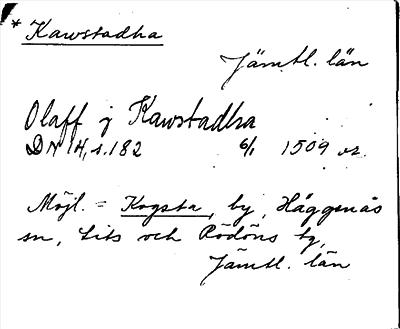 * Kawstadha
Jämtl. län
Olaff j Kawstadha
DN 14, s. 182 6/1 1509 or.
Möjl. = Kogsta, by, Häggenås
sn, Lits och Rödöns tg,
Jämtl. län